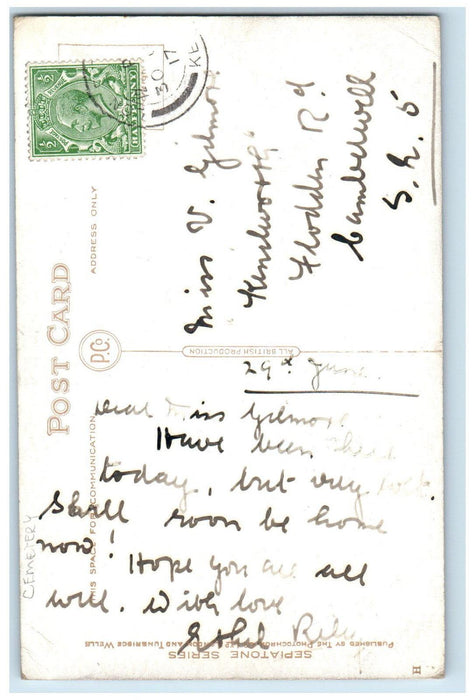 POST CARD
ADDRESS ONLY
P.Co.
ALL BRITISH PRODUCTION
THIS SPACE FOR COMMUNICATION
½ ½
HALFPENNY
30 JU
17
KE
Miss V. Gilmore
Kenilworth
Flodden Rd
Camberwell
S.E. 5
29th June
Dear Miss Gilmore
Have been
today, but very
Shall soon be home
now!
Hope you are all
well. With love
Ethel
CEMETERY
SEPIATONE SERIES
PUBLISHED BY THE PHOTOCHROM CO. LTD LONDON AND TUNBRIDGE WELLS
H